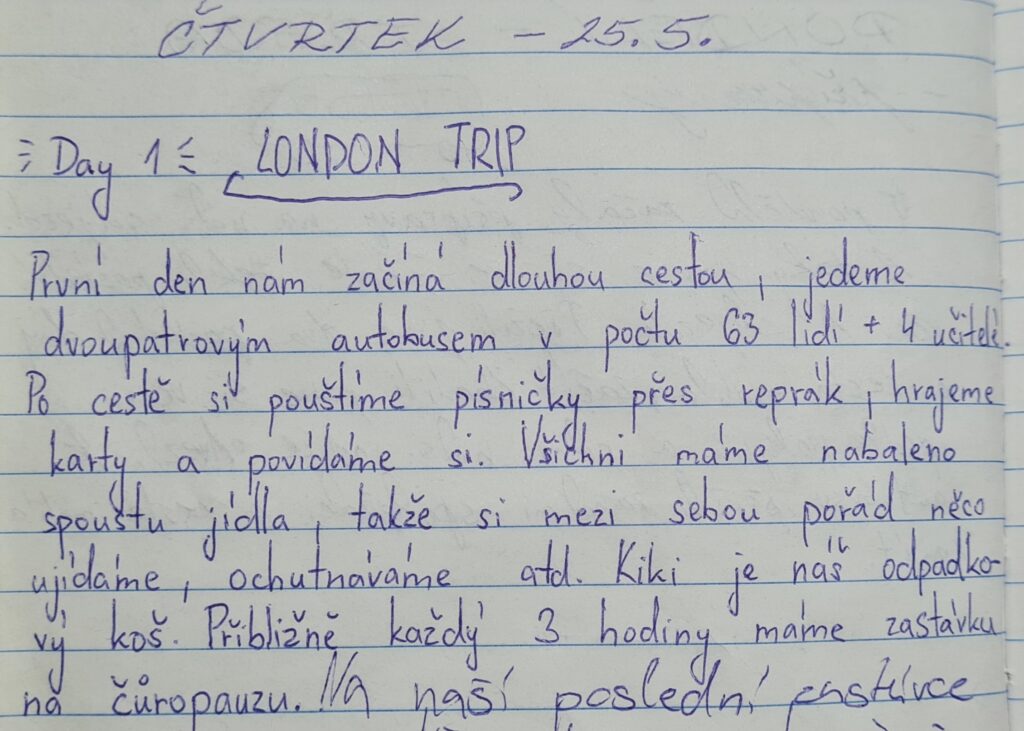 ČTVRTEK - 25.5.
Day 1 LONDON TRIP
První den nám začíná dlouhou cestou, jedeme
dvoupatrovým autobusem v počtu 63 lidí + 4 učitelé.
Po cestě si pouštíme písničky přes reprák, hrajeme
karty a povídáme si. Všichni máme nabaleno
spoustu jídla, takže si mezi sebou pořád něco
ujídáme, ochutnáváme atd. Kiki je náš odpadko-
vý koš. Přibližně každý 3 hodiny máme zastávku
na čůropauzu. Na naší poslední zastávce